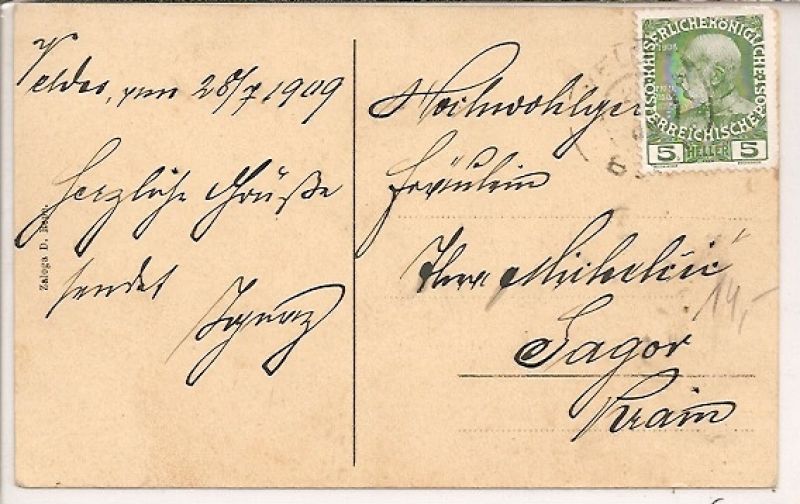 Veldes, am 28/7 1909
Herzliche Grüße
sendet
Ignaz
Zaloga D. Repe.
Hochwohlgeb
Fräulein
Mihelčič
Sagor
Krain
14,-
KAISERLICHE KÖNIGLICHE
ÖSTERREICHISCHE
1908
5 HELLER 5